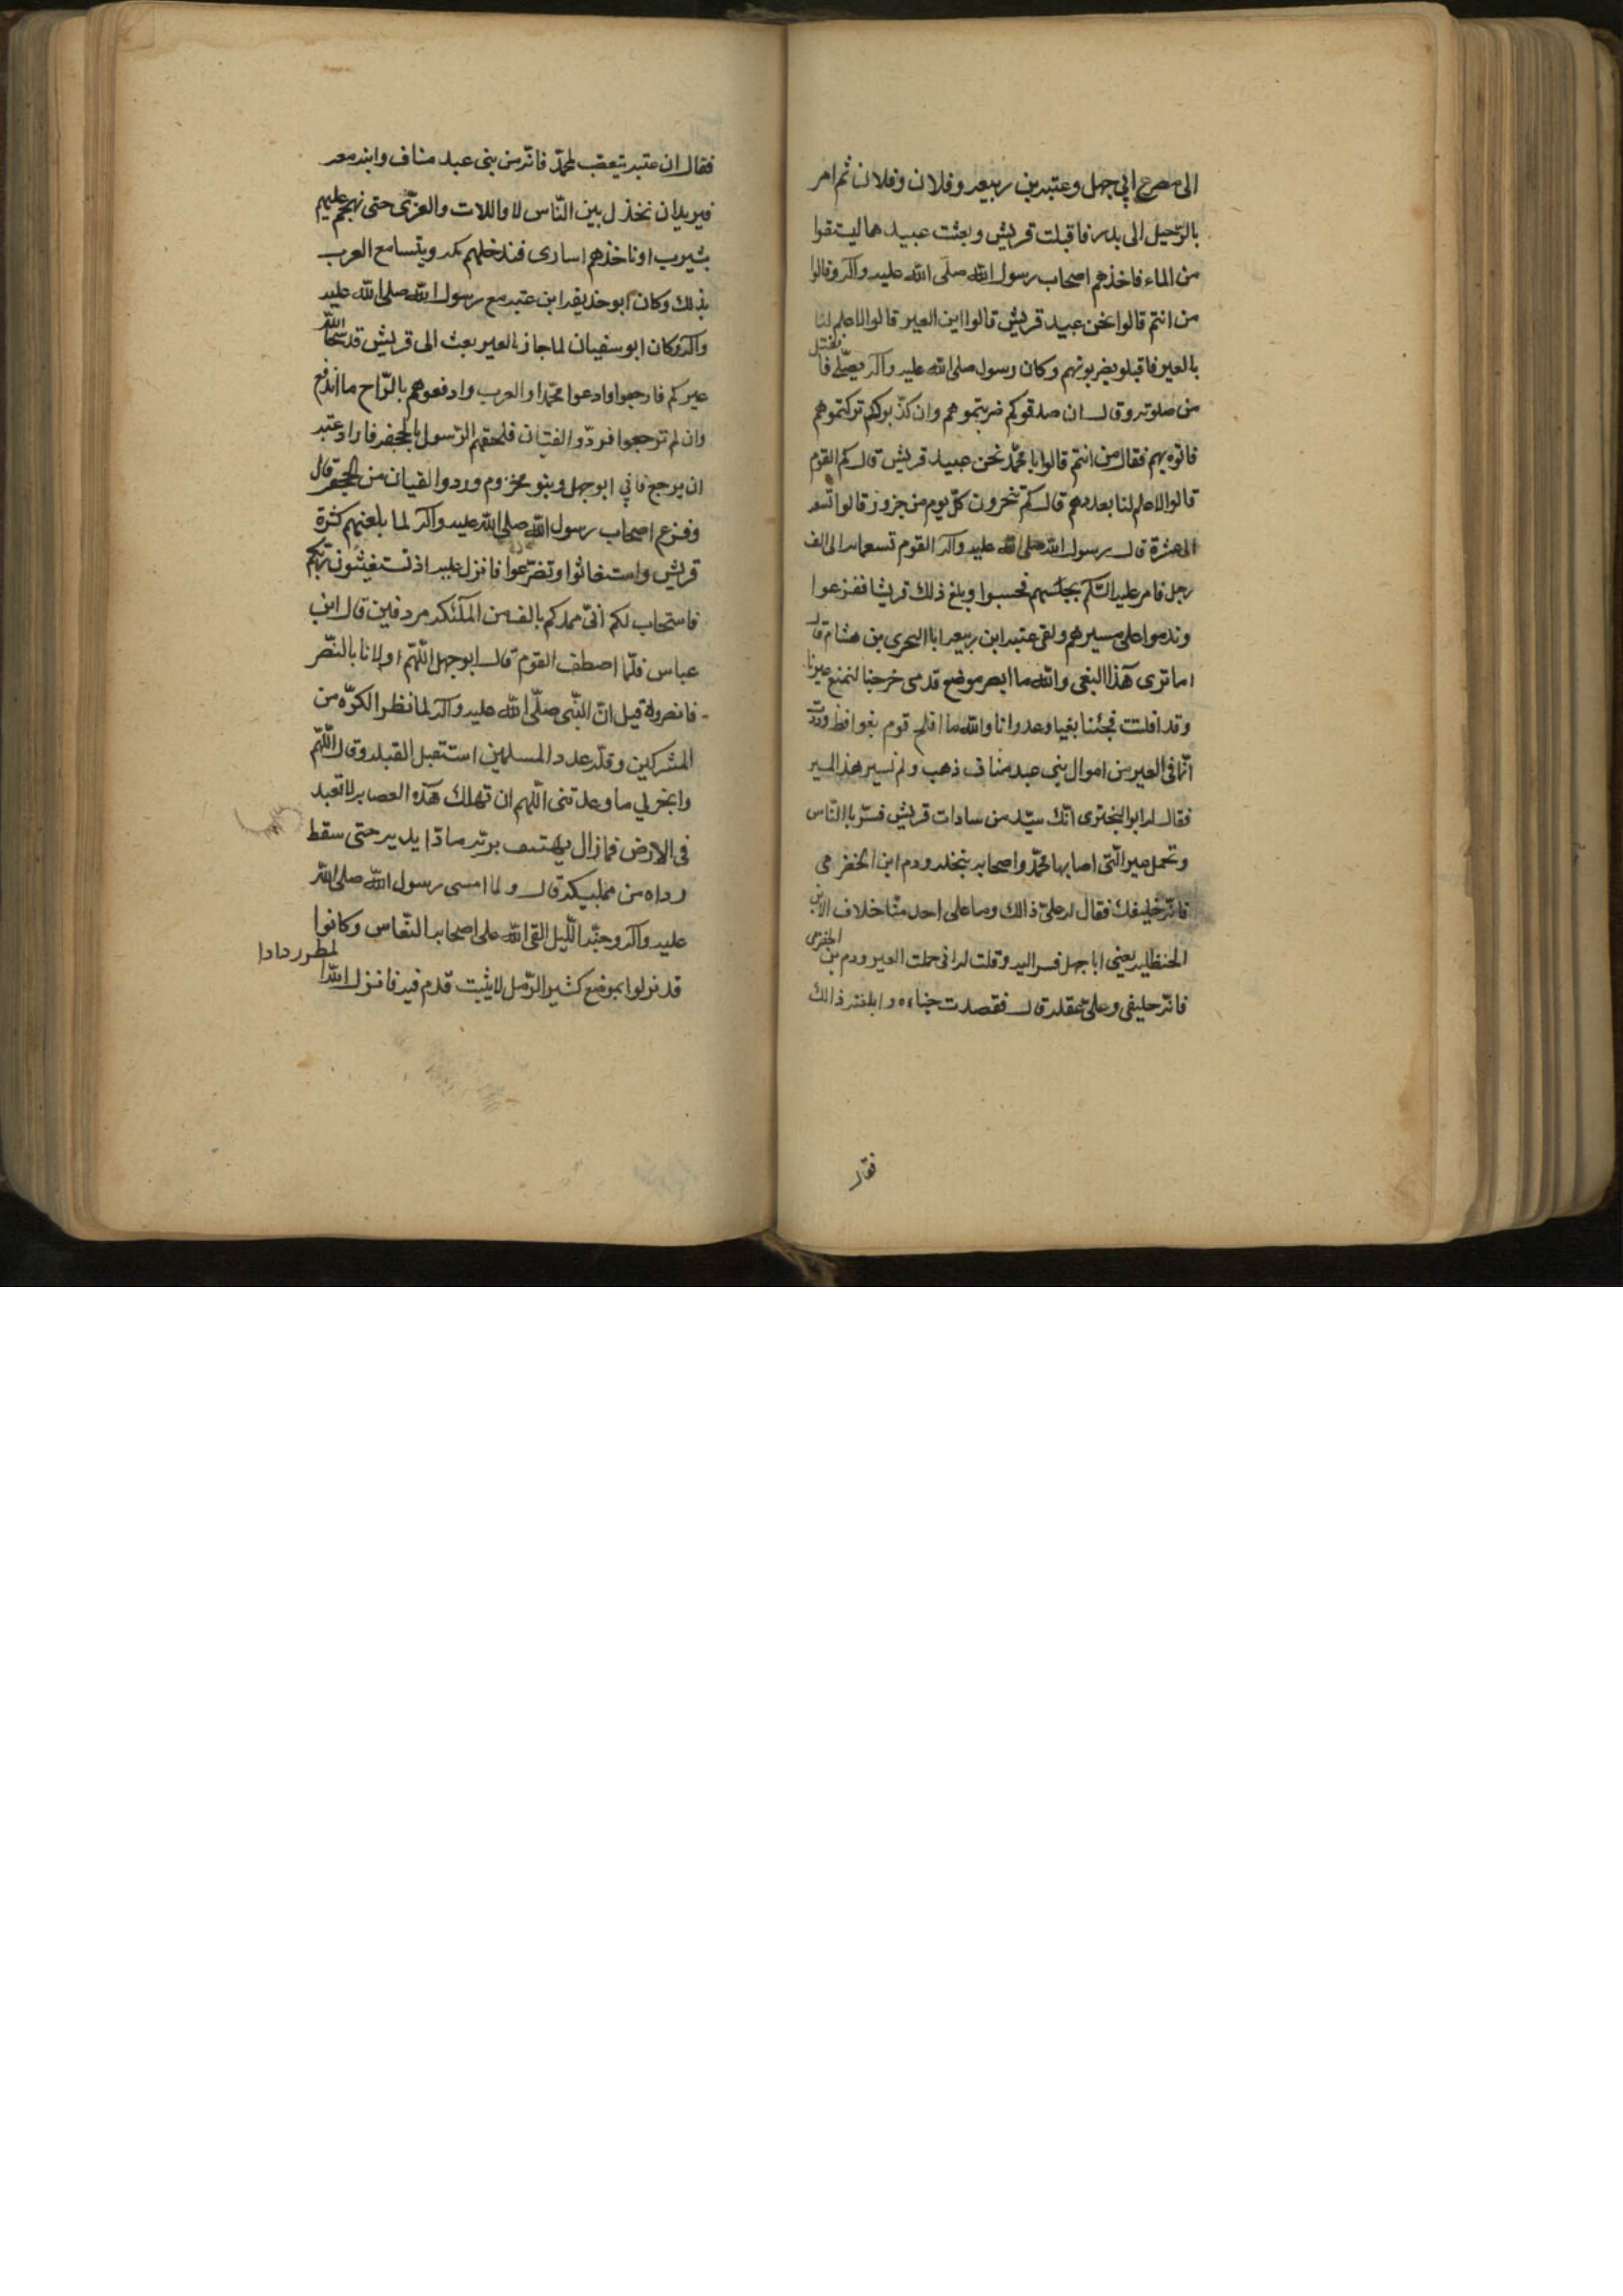 الى مصرع ابي جهل وعتبه بن ربيعه وفلان وفلان ثم امر
بالرّحيل الى بدر فاقبلت قريش وبعثت عبيدها ليستقوا
من الماء فاخذهم اصحاب رسول الله صلّى الله عليه وآله وقالوا
من انتم قالوا نحن عبيد قريش قالوا اين العير قالوا لا علم لنا
بالعير فاقبلو يضربونهم وكان رسول صلى الله عليه وآله يصلّى فانفتل
من صلوته وقال ان صدقوكم ضربتموهم وان كذّبوكم تركتموهم
فاتوه بهم فقال من انتم قالوا يا محمّد نحن عبيد قريش قال كم القوم
قالوا لا علم لنا بعددهم قال كم ينحرون كلّ يوم من جزور قالوا تسعه
الى عشرة قال رسول الله صلى الله عليه وآله القوم تسعمائه الى الف
رجل فامر عليه السّلم بحبسهم فحبسوا وبلغ ذلك قريشا ففزعوا
وندموا على مسيرهم ولقى عتبه ابن ربيعه ابا البحرى بن هشام قال
اما ترى هذا البغى والله ما ابصر موضع قدمى خرجنا لنمنع عيرنا
وقد افلتت فجئنا بغيا وعدوانا والله ما افلح قوم بغوا قط وددت
انّ ما فى العير من اموال بنى عبد مناف ذهب ولم نسير هذ المسير
فقال له ابو البخترى انّك سيّد من سادات قريش فسّر باالنّاس
وتحمل العير الّتى اصابها محمّد واصحابه بنخله ودم ابن الحضرمى
فانّه حليفك فقال له علىّ ذالك وما على احد منّا خلاف الا ابن
الحنظليه يعنى ابا جهل فسر اليه وقلت له انى حملت العير ودم بن الحضرمى
فانّه حليفى وعلىّ عقله قال فقصدت خباءه وابلغته ذالك
فقال
فقال ان عتبه يتعصّب لمحمّد فانّه من بنى عبد مناف وابنه معه
فيريد ان يخذل بين النّاس لا واللات والعزّى حتى نهجم عليهم
بيثرب او ناخذهم اسارى فندخلهم مكه ويتسامع العرب
بذلك وكان ابو حذيفه ابن عتبه مع رسول الله صلى الله عليه
وآله وكان ابو سفيان لما جاز بالعير بعث الى قريش قد نجّا الله
عيركم فارجعوا وادعوا محمّدا والعرب وادفعوهم بالرّاح ما اندفع
وان لم ترجعوا فردّوا القيان فلحقهم الرّسول بالجحفه فاراد عتبه
ان يرجع فابي ابو جهل وبنو مخزوم وردوا القيان من الجحفه قال
وفزع اصحاب رسول الله صلى الله عليه وآله لما بلغهم كثرة
قريش واستغاثوا وتضرّعوا فانزل عليه اذ تستغيثون ربّكم
فاستجاب لكم انّى ممدكم بالف من الملٓئكه مردفين قال ابن
عباس فلمّا اصطف القوم قال ابو جهل اللّهمّ اولانا بالنّصر
فانصره قيل انّ النّبى صلّى الله عليه وآله لما نظر الكثره من
المشركين وقلّه عدد المسلمين استقبل القبله وقال اللّهمّ
وانجز لي ما وعدتنى اللّهم ان تهلك هذه العصابه لا تعبد
فى الارض فما زال يهتف بربّه مادّا يديه حتى سقط
رداه من منكبيه قال ولما امسى رسول الله صلى الله
عليه وآله وجنّه اللّيل القى الله على اصحابه النّعاس وكانوا
قد نزلوا بموضع كثير الرّمل لا يثبت قدم فيه فانزل الله